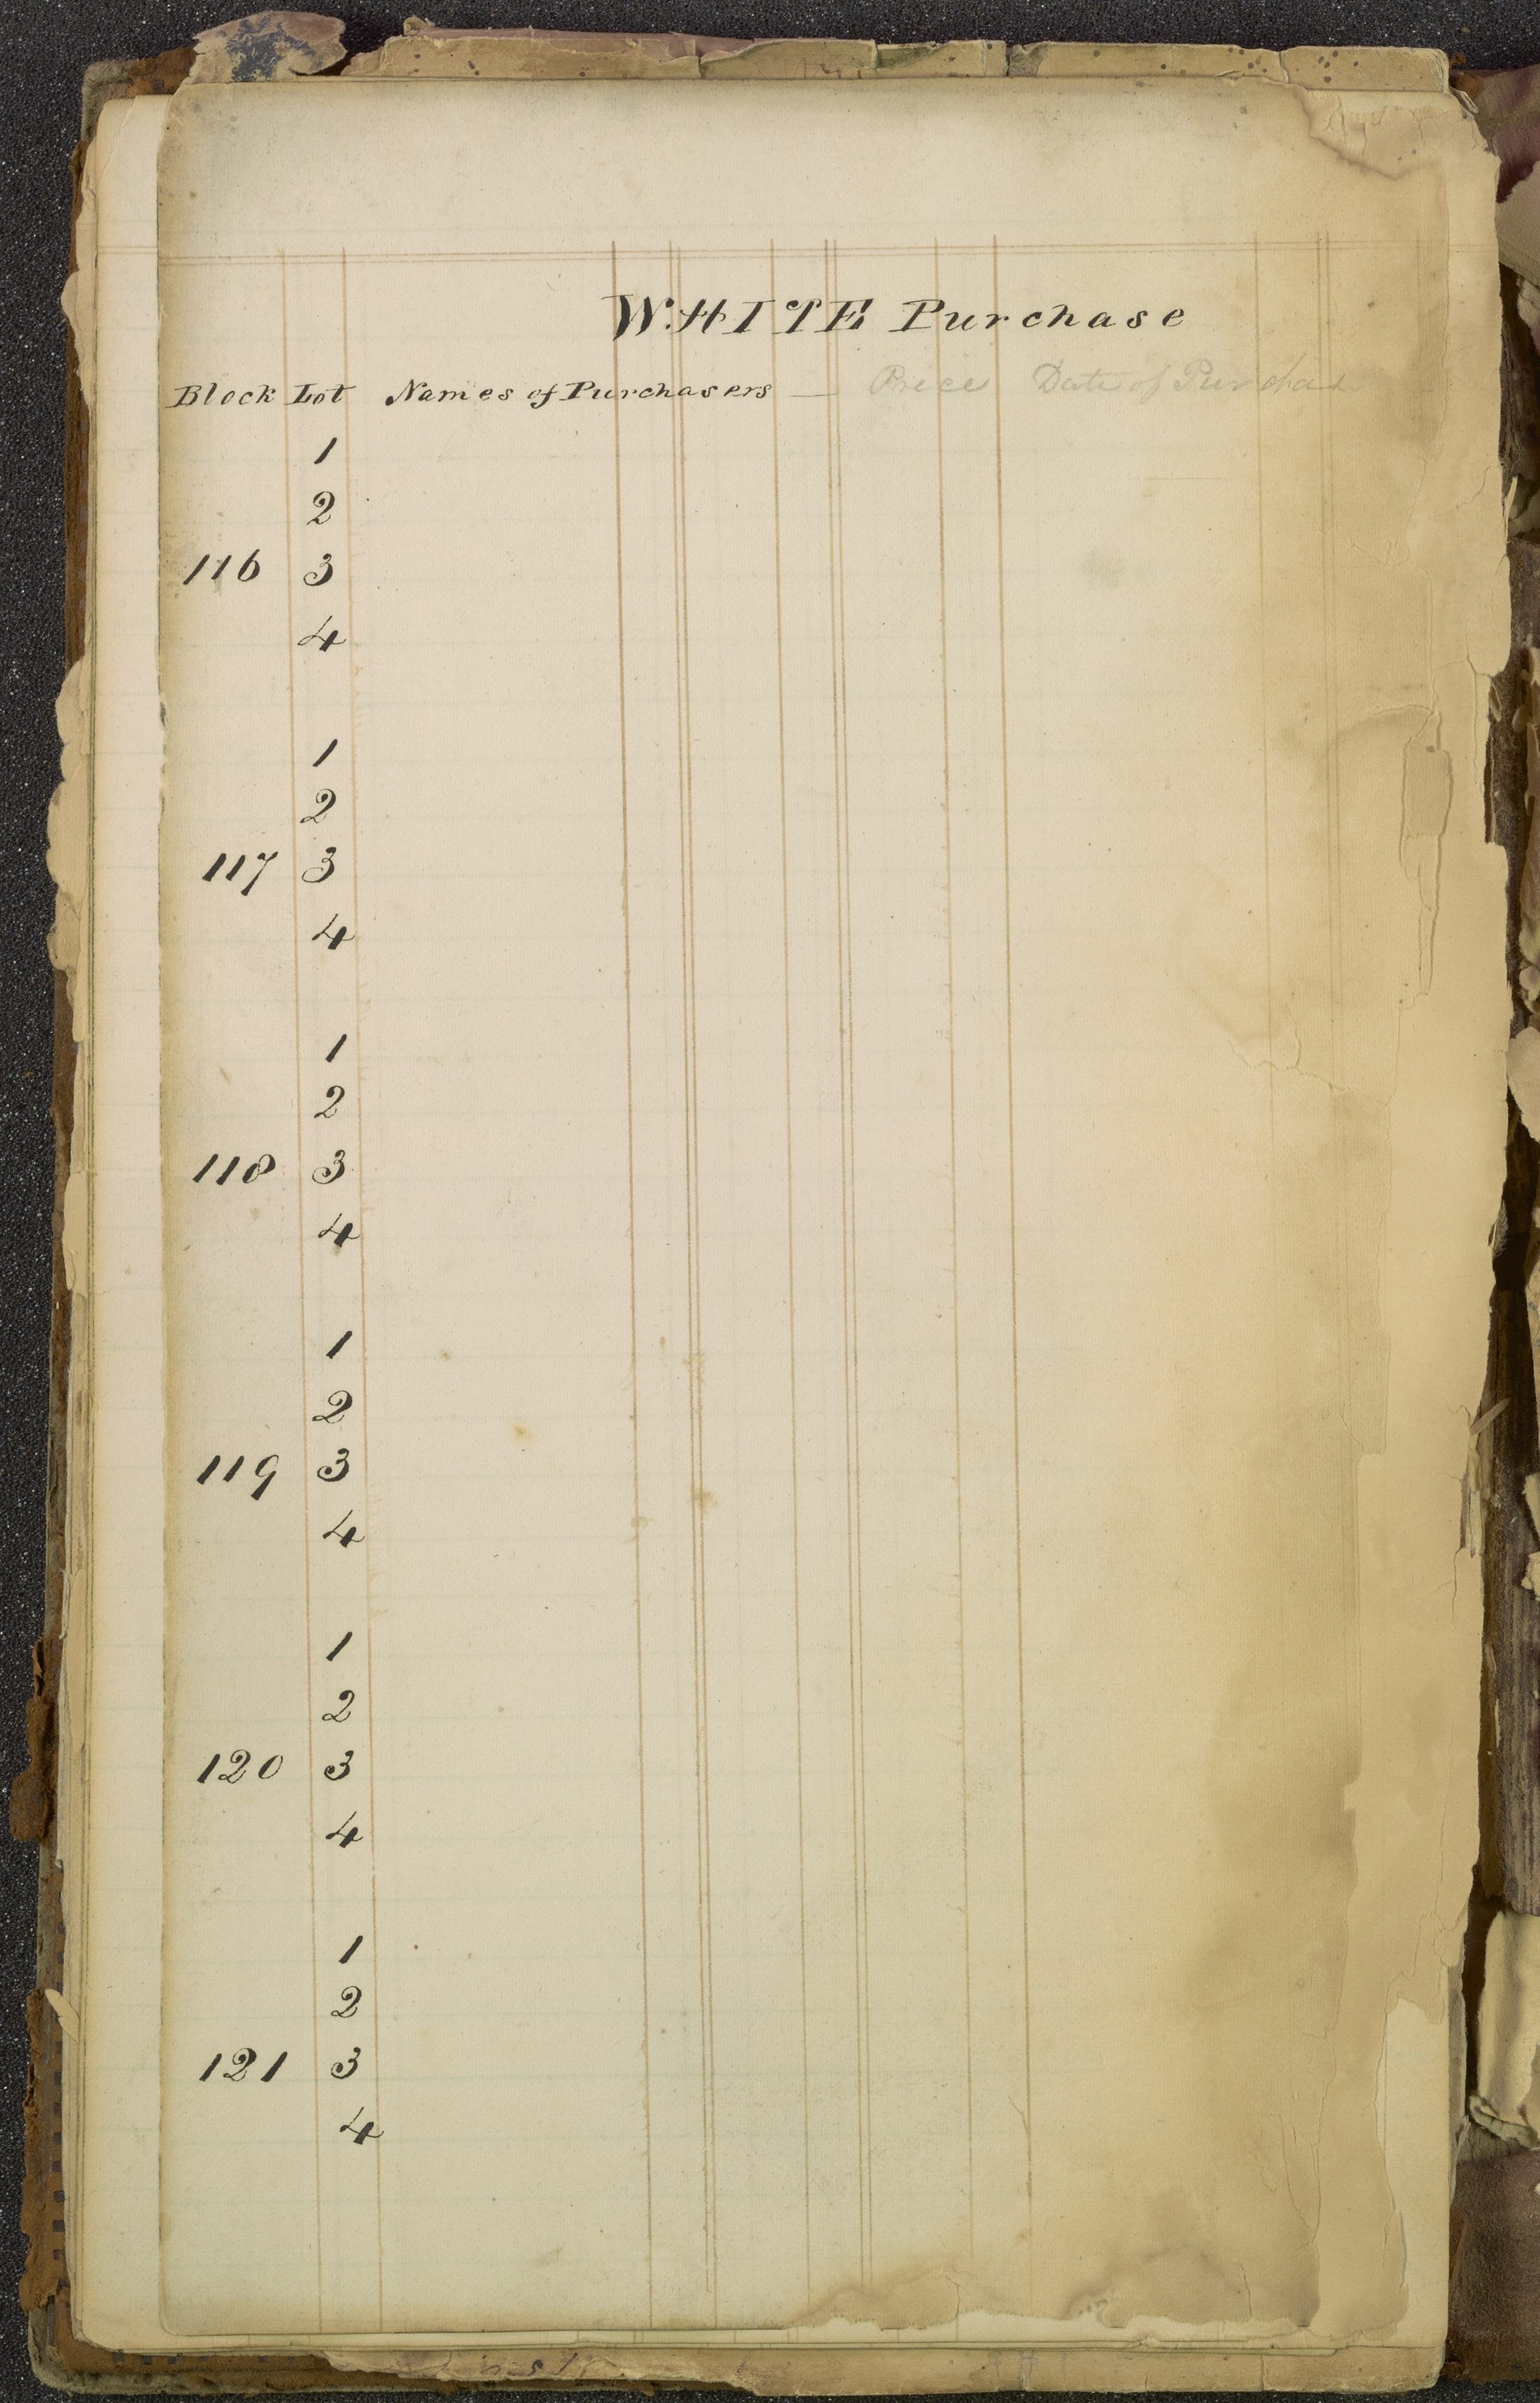 WHITE Purchase
Block Lot Names of Purchasers — Price Date of Purchas
1
2
116 3
4
1
2
117 3
4
1
2
118 3
4
1
2
119 3
4
1
2
120 3
4
1
2
121 3
4